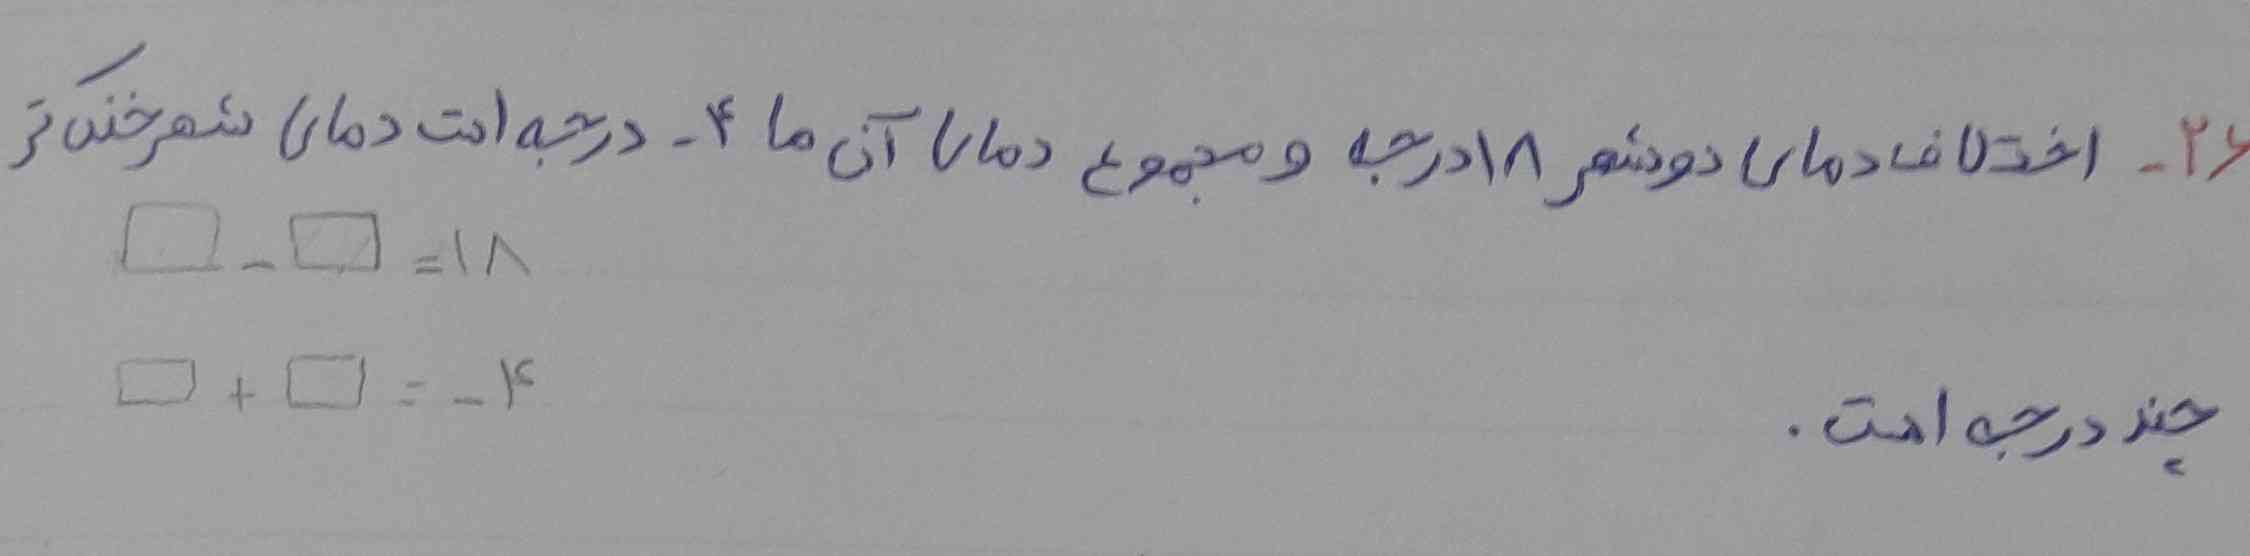 ۲۶- اختلاف دمای دو شهر ۱۸ درجه و مجموع دمای آن ها ۴- درجه است دمای شهر خنک تر
□ - □ = ۱۸
□ + □ = -۴
چند درجه است.